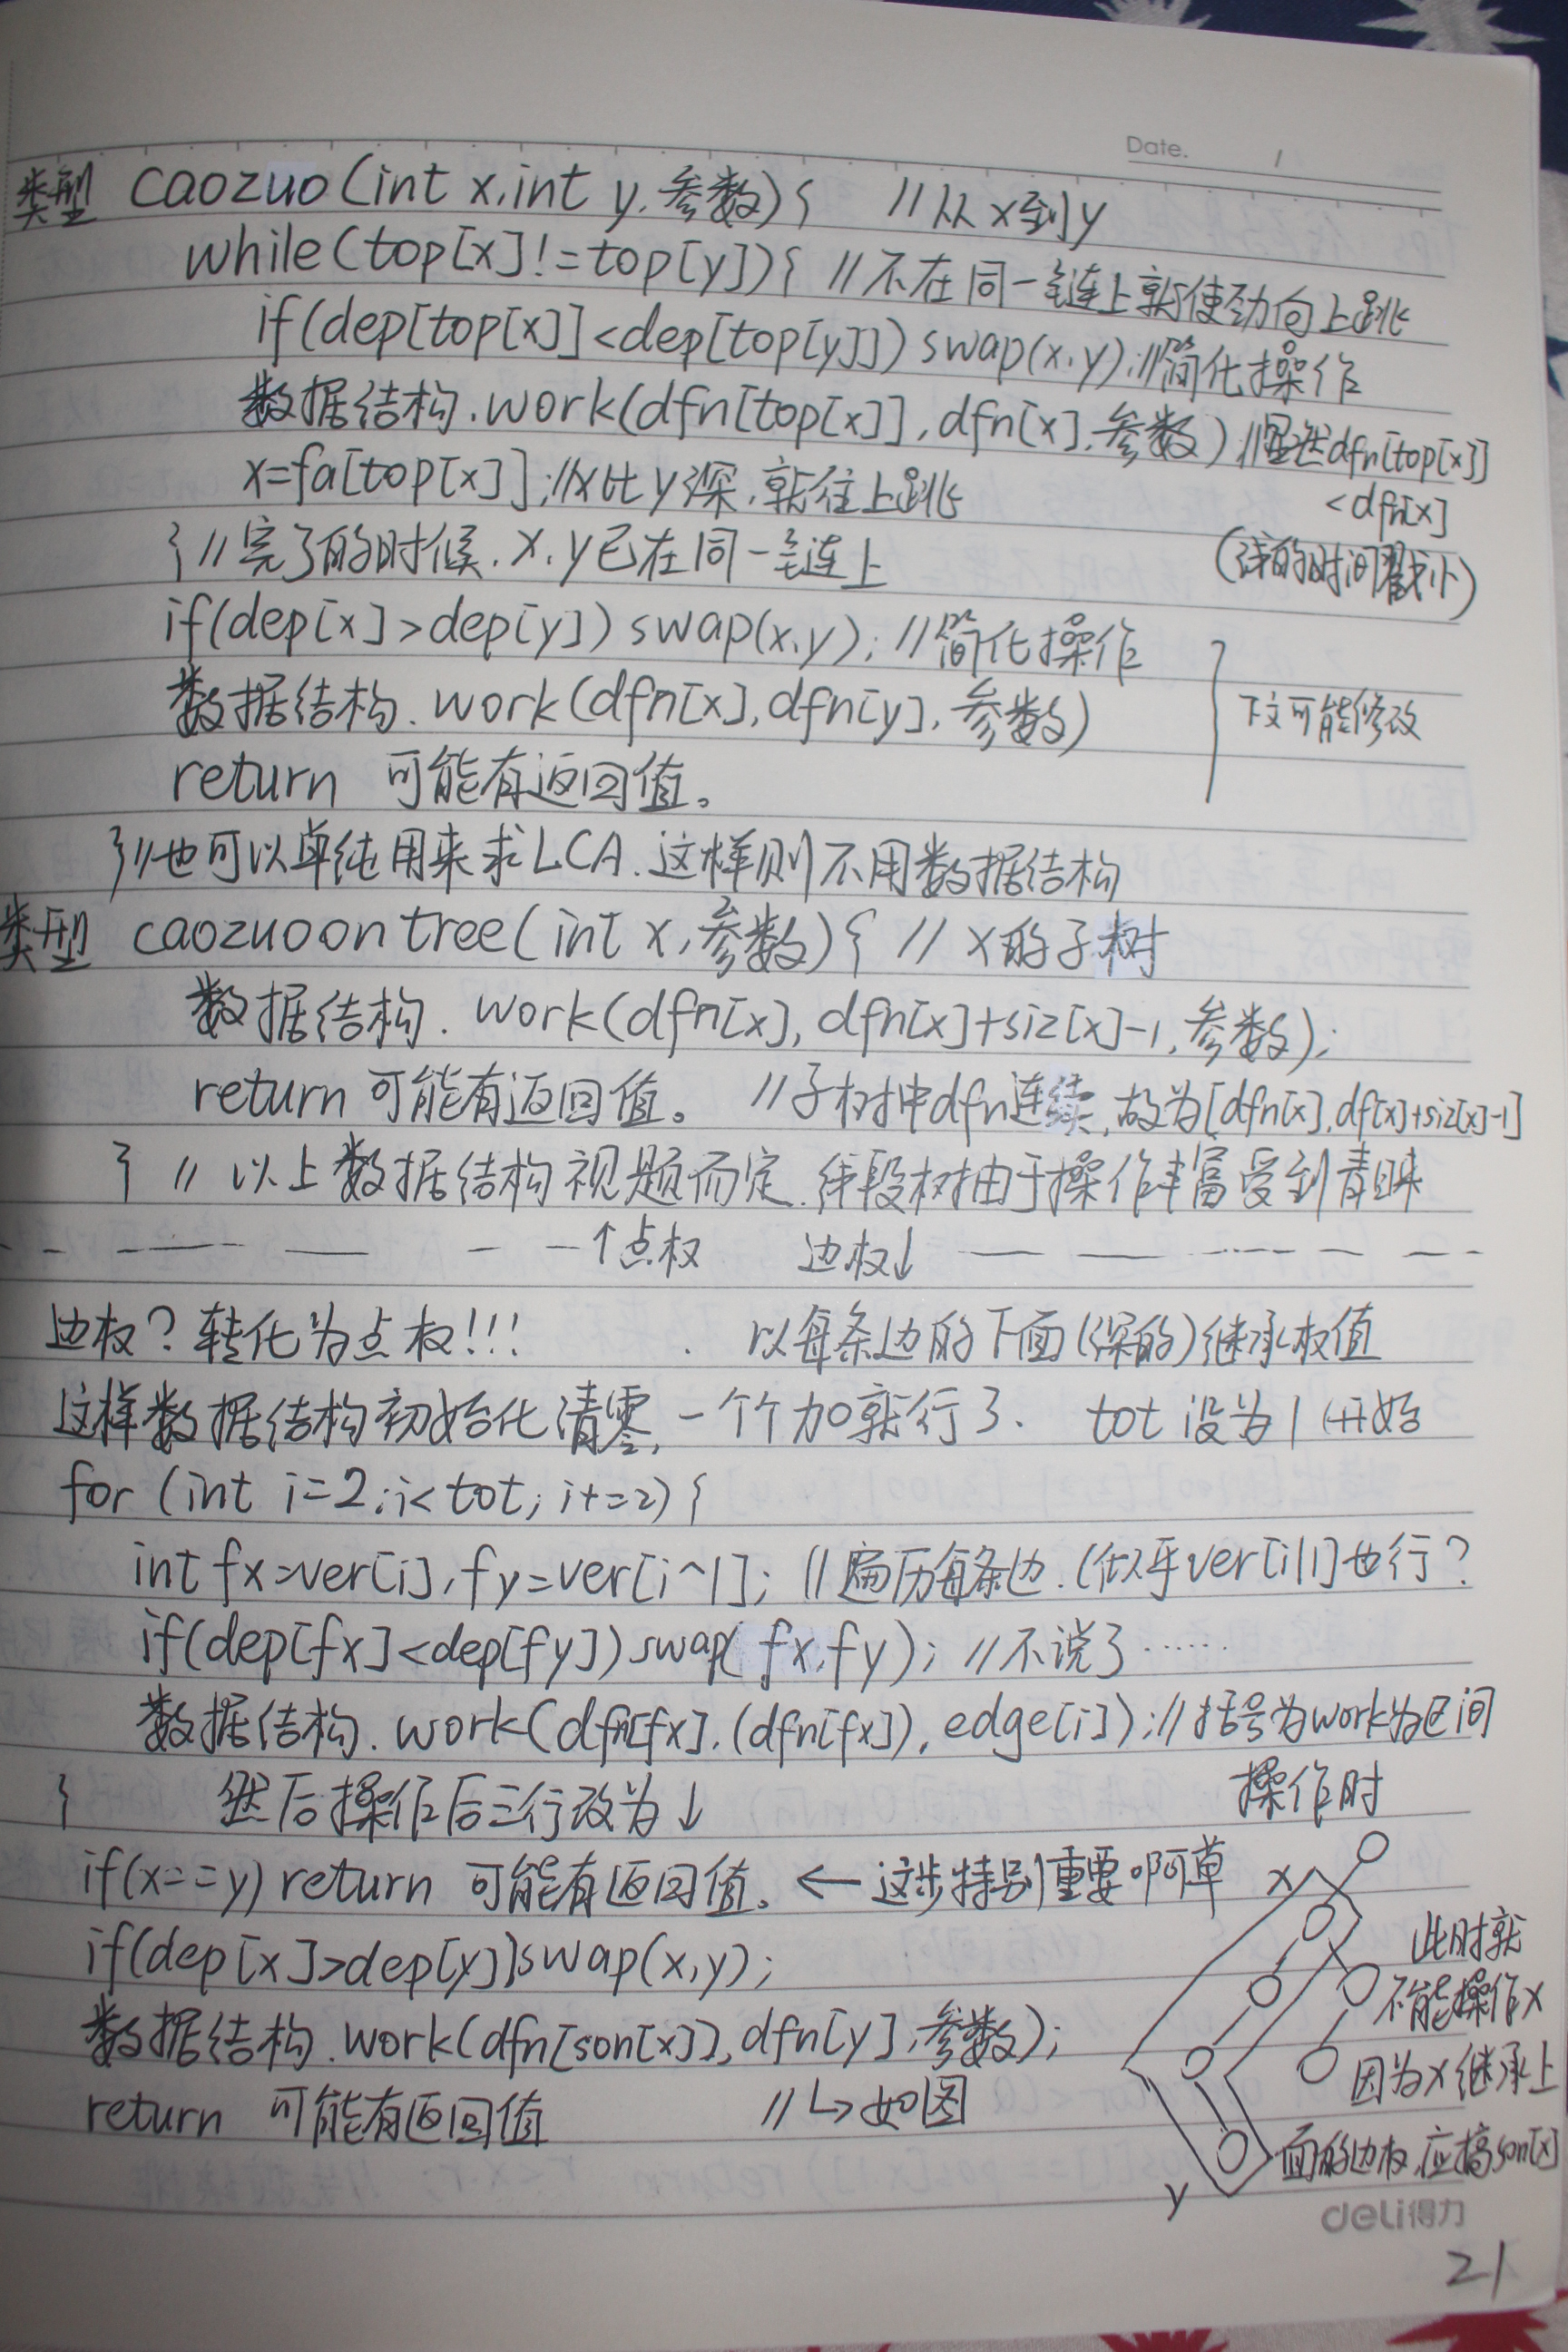 Date. /
类型 caozuo(int x,int y,参数){ //从x到y
while(top[x]!=top[y]){ //不在同一链上就使劲向上跳
if(dep[top[x]]<dep[top[y]])swap(x,y);//简化操作
数据结构.work(dfn[top[x]],dfn[x],参数);//显然dfn[top[x]]
<dfn[x]
x=fa[top[x]];//x比y深,就往上跳
(浅的时间戳小)
}//完了的时候,x,y已在同一链上
if(dep[x]>dep[y])swap(x,y);//简化操作
数据结构.work(dfn[x],dfn[y],参数)
下文可能修改
return 可能有返回值。
}//也可以单纯用来求LCA.这样则不用数据结构
类型 caozuoontree(int x,参数){ // x的子树
数据结构.work(dfn[x],dfn[x]+siz[x]-1,参数);
return 可能有返回值。 //子树中dfn连续,故为[dfn[x],df[x]+siz[x]-1]
} // 以上数据结构视题而定.线段树由于操作丰富受到青睐
↑点权 边权↓
边权?转化为点权!!! 以每条边的下面(深的)继承权值
这样数据结构初始化清零,一个个加就行了. tot设为1开始
for (int i=2;i<tot;i+=2){
int fx=ver[i],fy=ver[i^1]; //遍历每条边.(似乎ver[i|1]也行?
if(dep[fx]<dep[fy])swap(fx,fy); //不说了……
数据结构.work(dfn[fx],(dfn[fx]),edge[i]);//括号为work为区间
操作时
} 然后操作后三行改为↓
if(x==y)return 可能有返回值。←这步特别重要啊草
x
if(dep[x]>dep[y])swap(x,y);
此时就
不能操作x
数据结构.work(dfn[son[x]],dfn[y],参数);
因为x继承上
return 可能有返回值 //↳如图
面的边权,应搞son[x]
y
deli得力
21